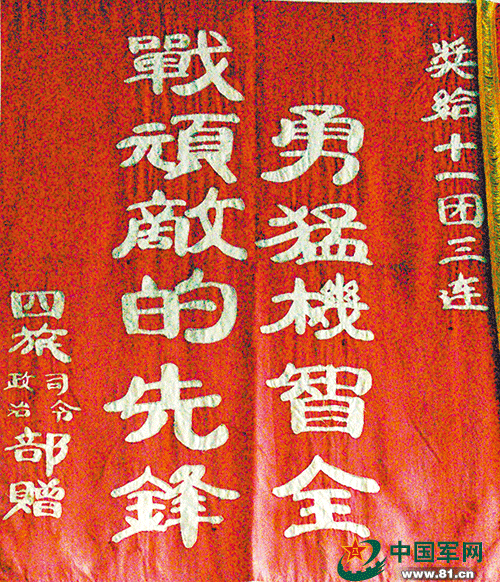 奖给十一团三连
勇猛機智全
戰頑敵的先鋒
四旅司令政治部贈
中国军网
www.81.cn